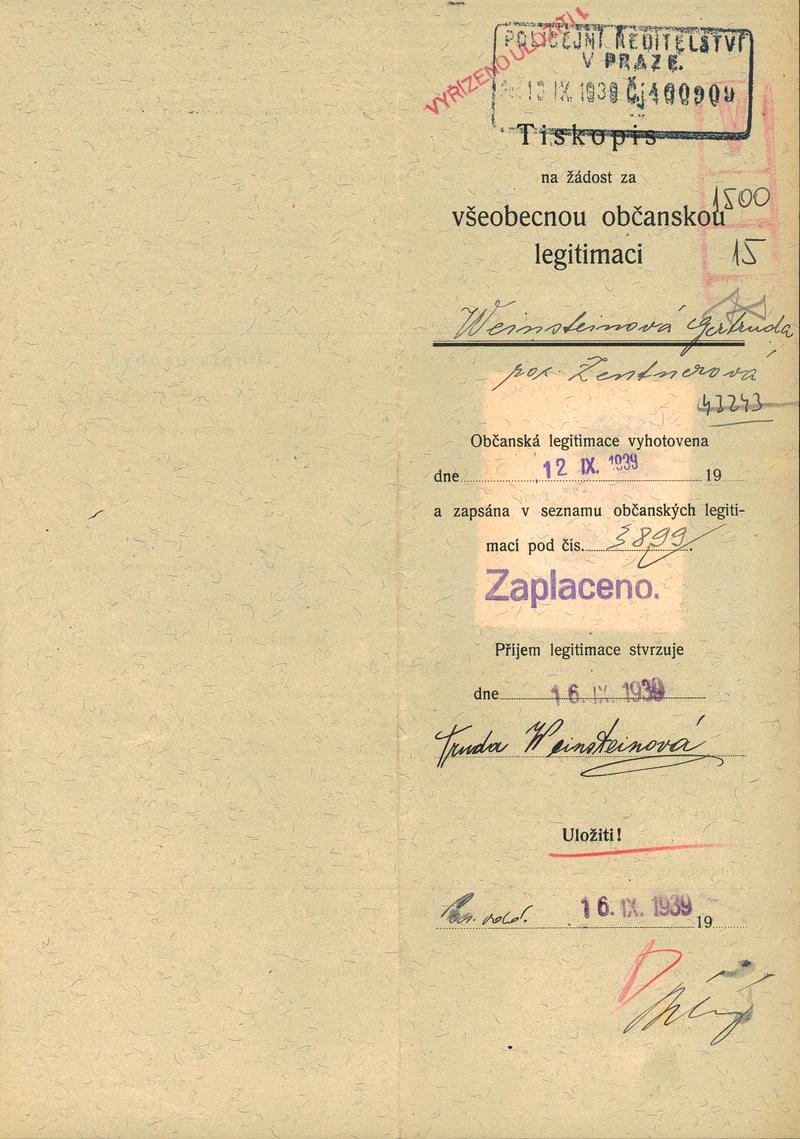 VYŘÍZENO ULOŽITI!
POLICEJNÍ ŘEDITELSTVÍ
V PRAZE.
IX 1939 Čj 400909
Tiskopis
na žádost za
1500
všeobecnou občanskou
legitimaci
15
Weinsteinová Gertruda
roz. Zentnerová
43243
Občanská legitimace vyhotovena
dne 12 IX. 1939 19
a zapsána v seznamu občanských legiti-
mací pod čís. 3899.
Zaplaceno.
Příjem legitimace stvrzuje
dne 16. IX. 1939
Truda Weinsteinová
Uložiti!
odd. 16. IX. 1939 19